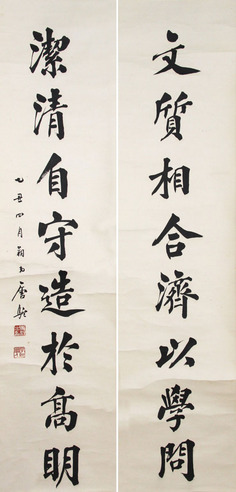 文質相合濟以學問
潔清自守造於高明
乙丑四月